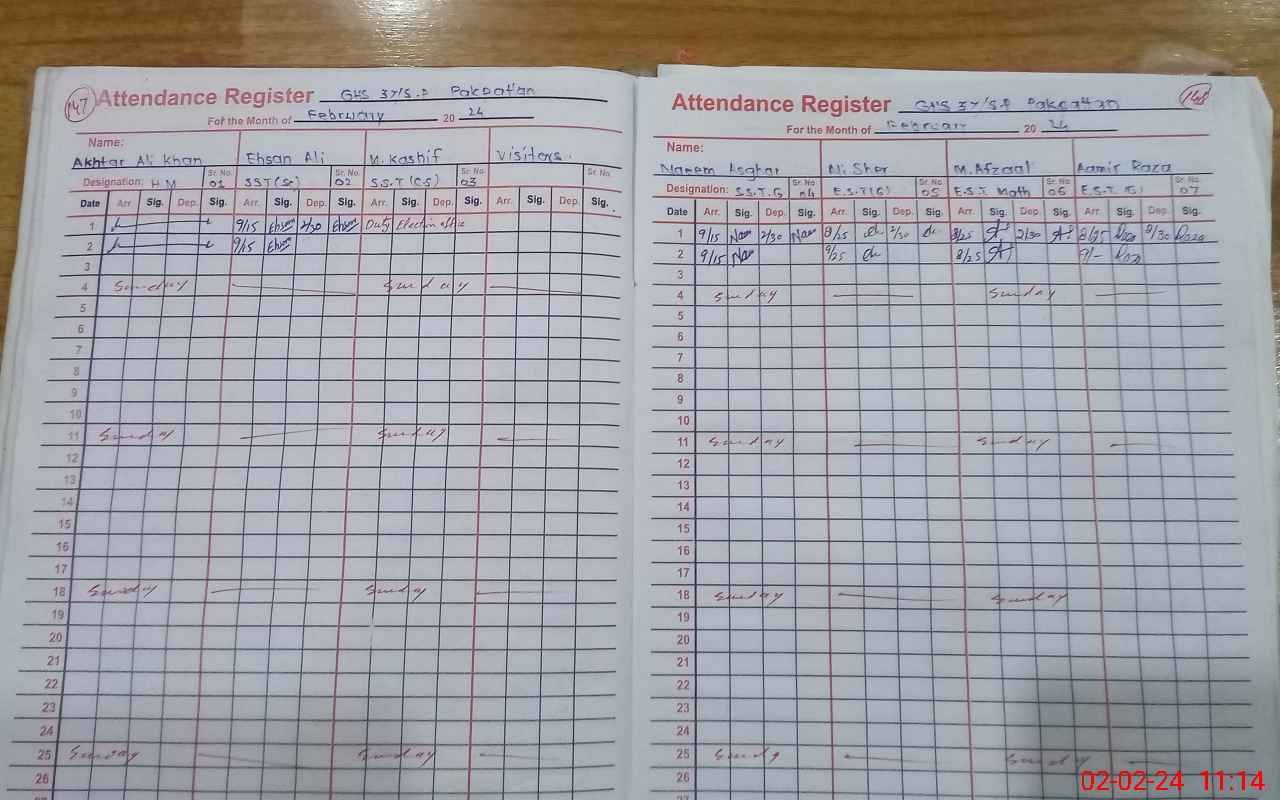 147 Attendance Register GHS 37/S.P Pakpattan
For the Month of February 20 24
Name:
Akhtar Ali Khan Ehsan Ali M. Kashif Visitors.
Designation: HM Sr. No. 01 SST (Sc) Sr. No. 02 S.S.T (CS) Sr. No. 03 Sr. No.
Date Arr. Sig. Dep. Sig. Arr. Sig. Dep. Sig. Arr. Sig. Dep. Sig. Arr. Sig. Dep. Sig.
1 9/15 Ehsan 2/30 Ehsan Duty Election office
2 9/15 Ehsan
3
4 Sunday Sunday
5
6
7
8
9
10
11 Sunday Sunday
12
13
14
15
16
17
18 Sunday Sunday
19
20
21
22
23
24
25 Sunday Sunday
26
Attendance Register GHS 37/S.P Pakpattan 148
For the Month of February 20 24
Name:
Naeem Asghar Ali Sher M. Afzaal Aamir Raza
Designation: S.S.T.G Sr. No. 04 E.S.T(G) Sr. No. 05 E.S.T Math Sr. No. 06 E.S.T (G) Sr. No. 07
Date Arr. Sig. Dep. Sig. Arr. Sig. Dep. Sig. Arr. Sig. Dep. Sig. Arr. Sig. Dep. Sig.
1 9/15 2/30 8/25 2/30 8/25 2/30 8/25 Raza 2/30 Raza
2 9/15 9/25 8/25 9/- Raza
3
4 Sunday Sunday
5
6
7
8
9
10
11 Sunday Sunday
12
13
14
15
16
17
18 Sunday Sunday
19
20
21
22
23
24
25 Sunday Sunday
26
02-02-24 11:14